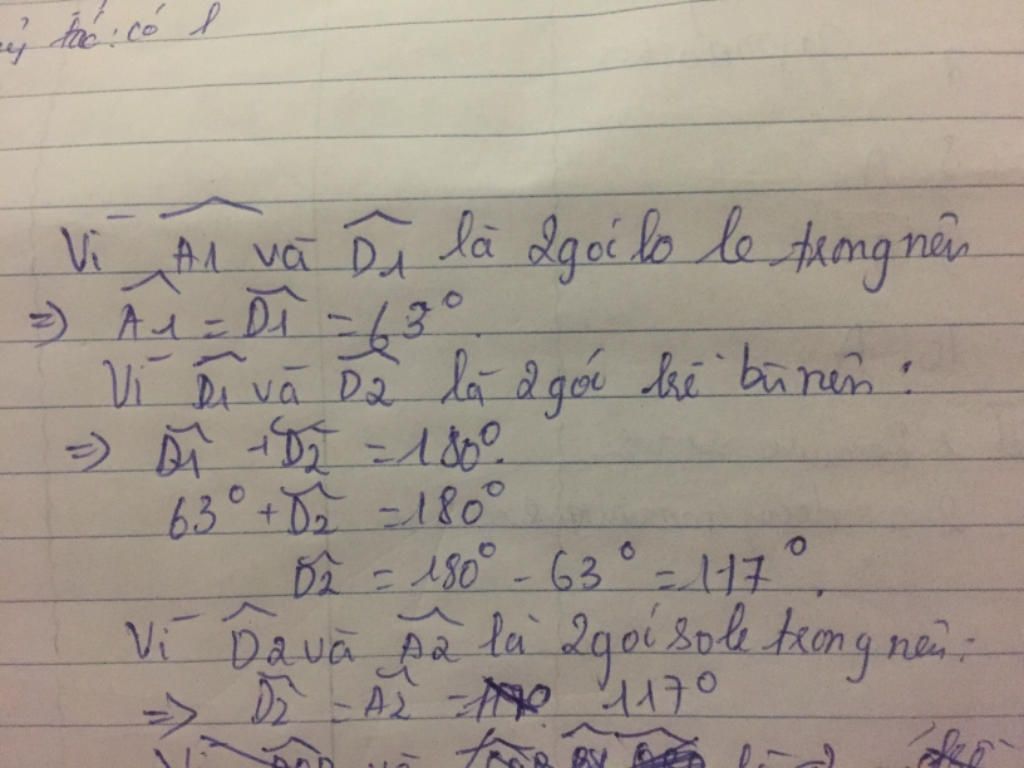 tắc: có 1
Vì Â1 và D̂1 là 2 gói lo le trong nên
=> Â1 = D̂1 = 63°.
Vì D̂1 và D̂2 là 2 gói kề bù nên:
=> D̂1 + D̂2 = 180°.
63° + D̂2 = 180°
D̂2 = 180° - 63° = 117°.
Vì D̂2 và Â2 là 2 gói so le trong nên:
=> D̂2 = Â2 = 117°